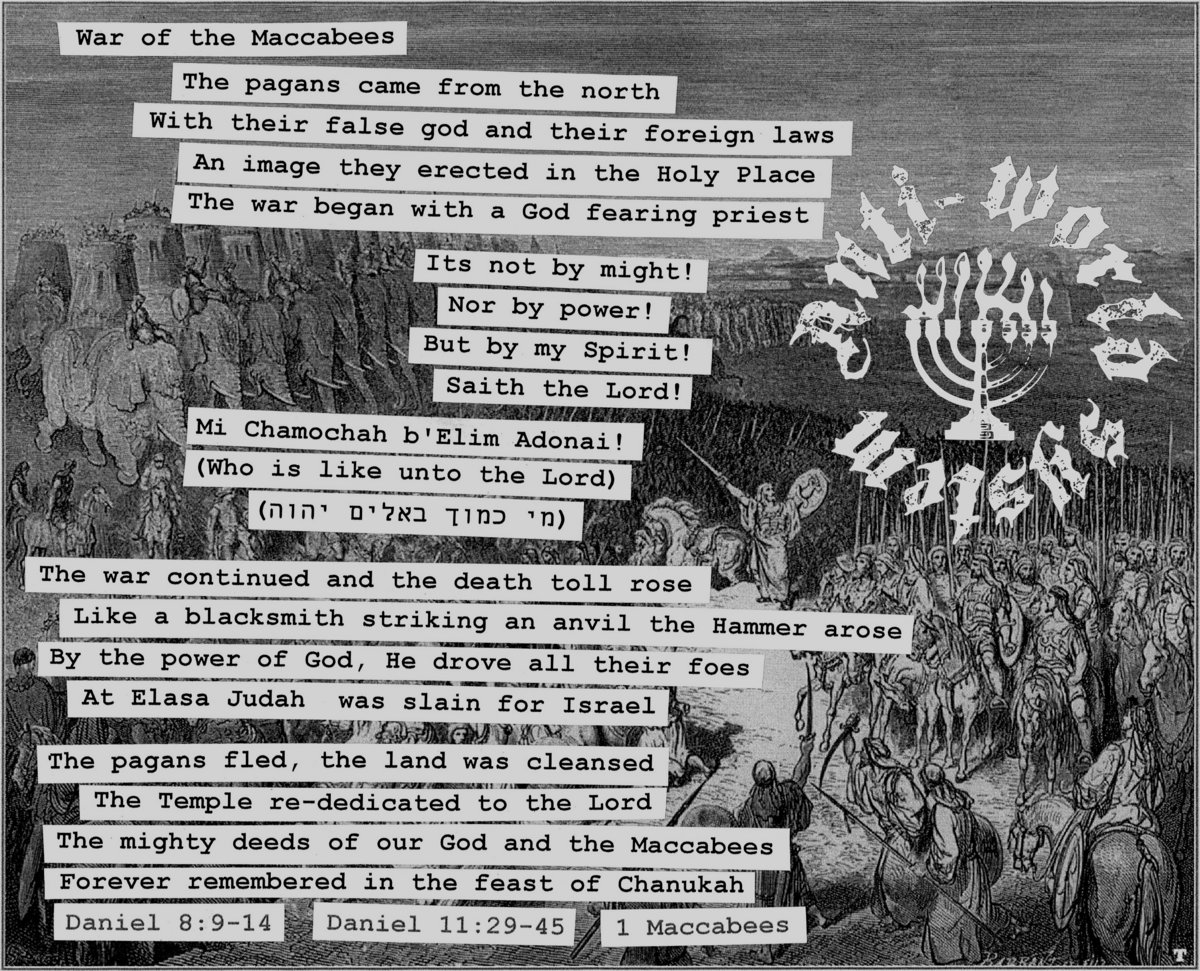 War of the Maccabees
The pagans came from the north
With their false god and their foreign laws
An image they erected in the Holy Place
The war began with a God fearing priest
Its not by might!
Nor by power!
But by my Spirit!
Saith the Lord!
Mi Chamochah b'Elim Adonai!
(Who is like unto the Lord)
(מי כמוך באלים יהוה)
The war continued and the death toll rose
Like a blacksmith striking an anvil the Hammer arose
By the power of God, He drove all their foes
At Elasa Judah was slain for Israel
The pagans fled, the land was cleansed
The Temple re-dedicated to the Lord
The mighty deeds of our God and the Maccabees
Forever remembered in the feast of Chanukah
Daniel 8:9-14
Daniel 11:29-45
1 Maccabees
T